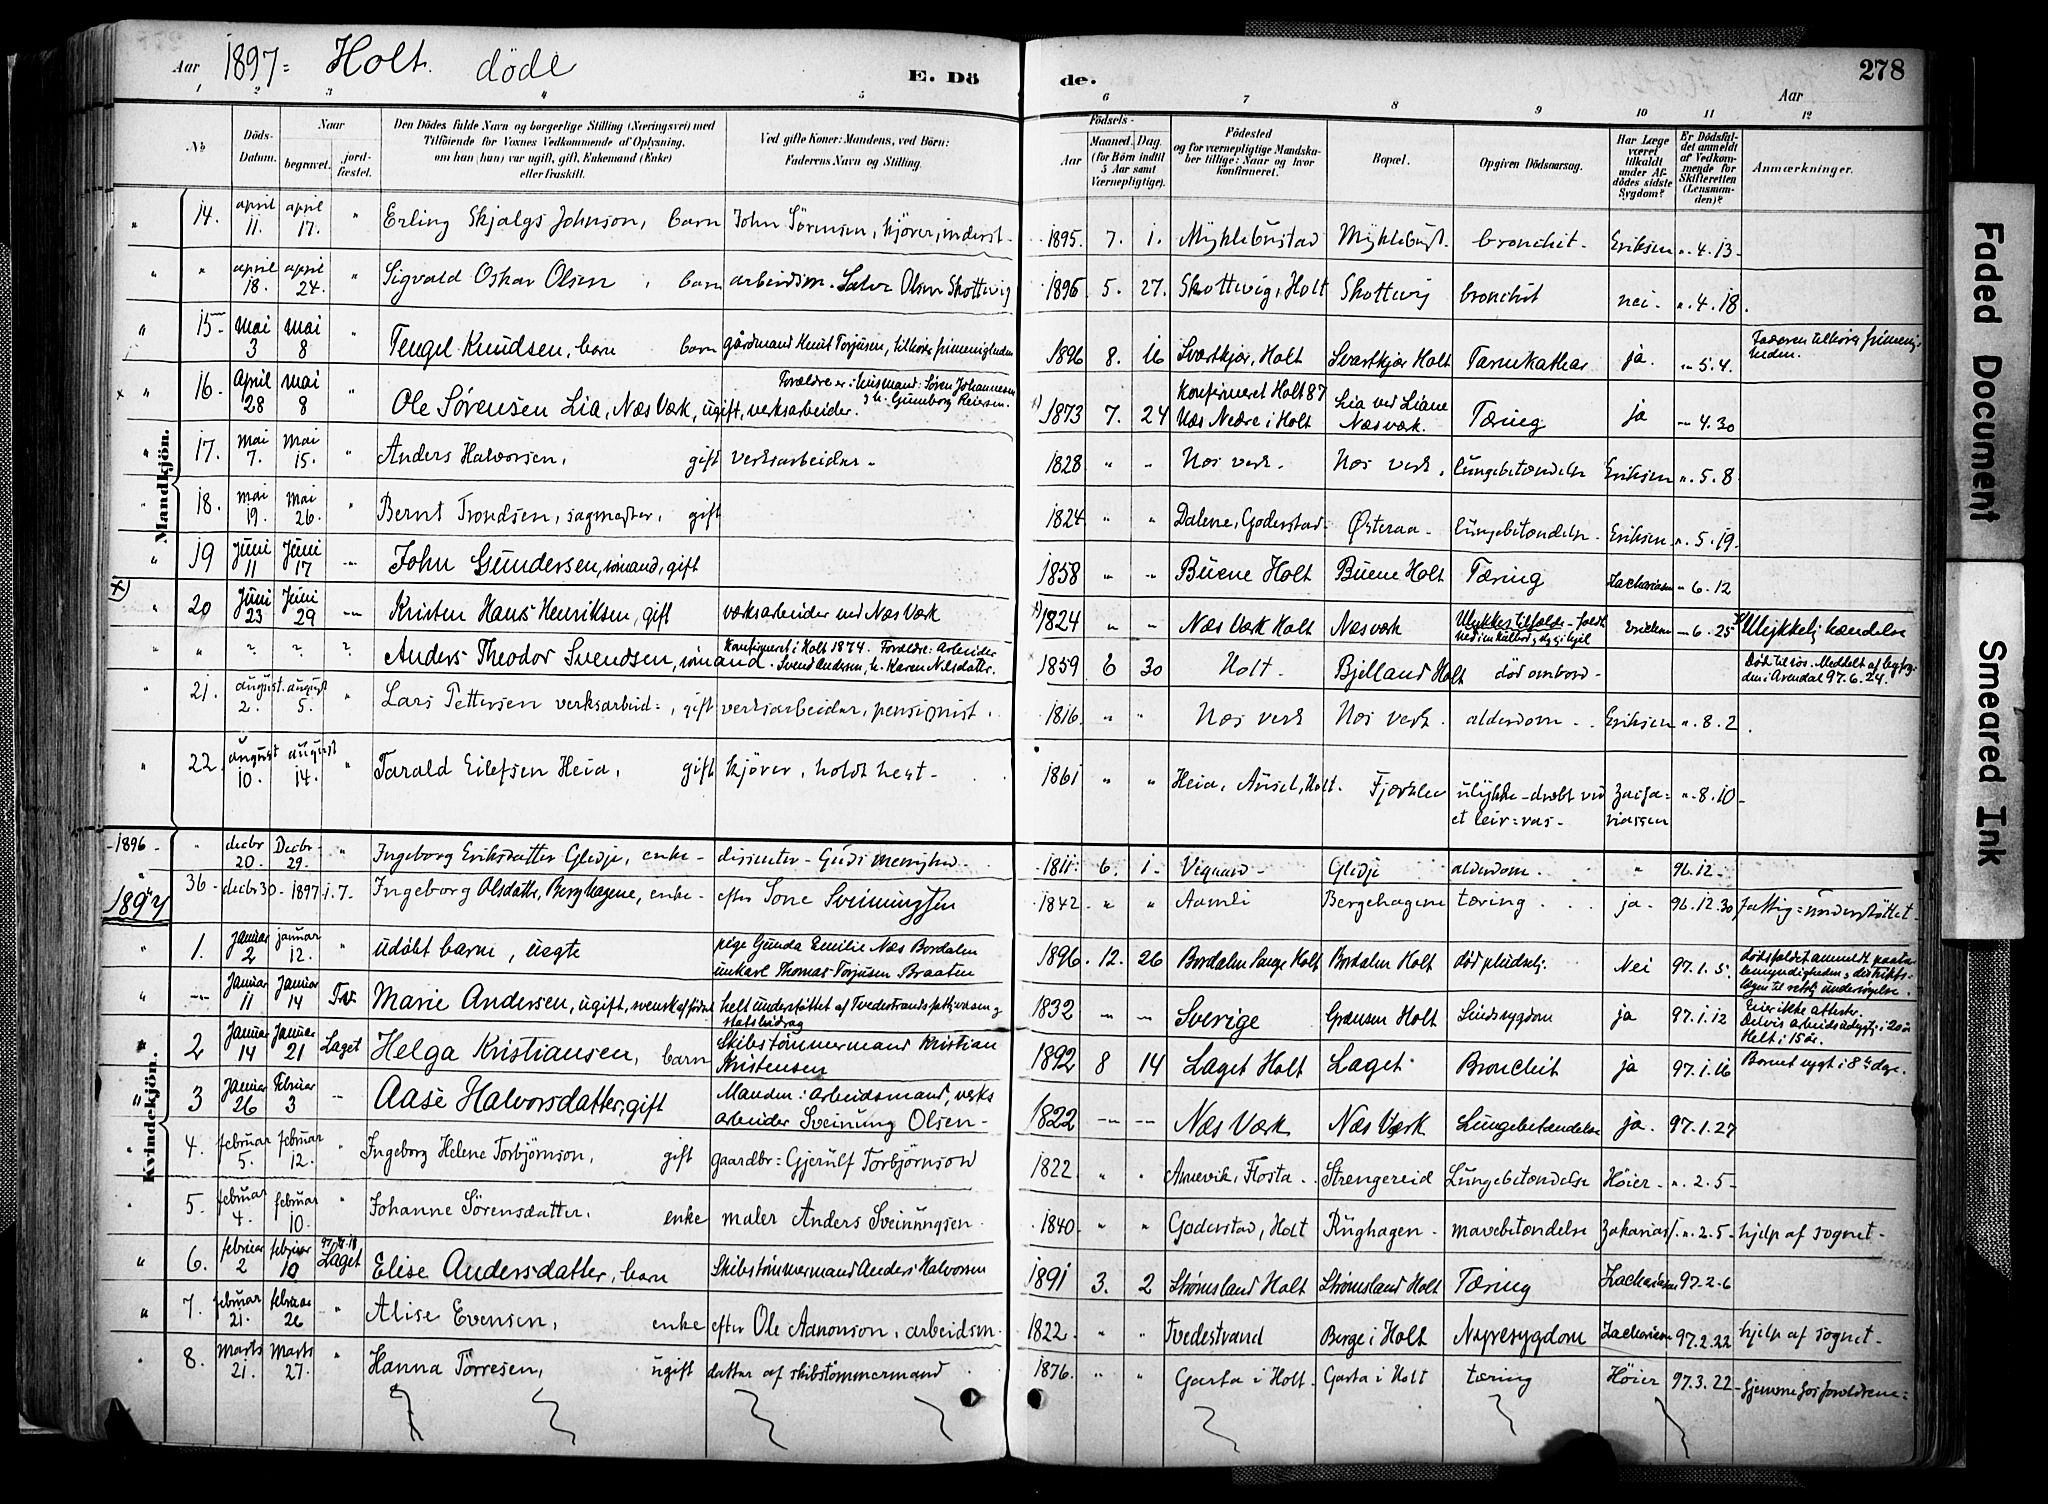 Aar 1897= Holt. döde E. Dö de. 278
Aar
1 2 3 4 5 6 7 8 9 10 11 12
No Döds-Datum. Naar begravet. jord-fæstet. Den Dödes fulde Navn og borgerlige Stilling (Næringsvei) med Tilföiende for Voxnes Vedkommende af Oplysning, om han (hun) var ugift, gift, Enkemand (Enke) eller fraskilt. Ved gifte Koner: Mandens, ved Börn: Faderens Navn og Stilling. Födsels- Aar Maaned. Dag. (for Börn indtil 5 Aar samt Værnepligtige). Födested og for værnepligtige Mandska-ber tillige: Naar og hvor konfirmeret. Bopæl. Opgiven Dödsaarsag. Har Læge været tilkaldt under Af-dödes sidste Sygdom? Er Dödsfal-det anmeldt af Vedkom-mende for Skifteretten (Lensman-den)? Anmærkninger.
Mandkjön.
" 14. april 11. april 17. " Erling Skjalgs Johnson, barn John Sörensen, kjörer, inderst- 1895. 7. 1. Myklebustad Myklebust. bronchit- Eriksen ". 4. 13-
" " april 18. april 24. " Sigvald Oskar Olsen, barn arbeidsm. Salve Olsen Skottevig 1896. 5. 27. Skottevig, Holt Skottevig bronchit nei- ". 4. 18.
" 15 mai 3 mai 8 " Tengel Knudsen, barn barn gårdmand Knut Torjusen, tilhører frimenigheden 1896 8. 16 Svartkjær, Holt Svartkjær Holt Tarmkathar ja. " 5.4. Faderen tilhører frimenig-heden.
x " 16. April 28 mai 8 " Ole Sørensen Lia, Næs Værk, ugift, verksarbeider. Forældre er: husmand: Søren Johannesen & h. Gunnborg Reiersn. 1873 7. 24 Konfirmeret Holt 87 Næs Nedre i Holt Lia ved Liane Næsværk. Tæring ja — 4.30
" 17. mai 7. mai 15. " Anders Halvorsen, gift verksarbeider- 1828 " " Næs verk- Næs verk, lungebetændelse Eriksen ". 5. 8.
" 18. mai 19. mai 26. " Bernt Trondsen, sagmester, gift 1824 " " Dalene, Goderstad- Østeraa- lungebetændelse- Eriksen ". 5. 19.
" 19 Juni 11 Juni 17 — John Gundersen, sømand, gift 1858 " " Buene Holt Buene Holt Tæring Zachariasen " 6.12
x) " 20 Juni 23 Juni 29 — Kristen Hans Henriksen, gift værksarbeider ved Næs Værk 1824 " " Næs Værk Holt Næsværk Ulykkestilfælde- faldt Ericksen — 6.25 Ulykkelig hændelse
" " ? ? ? Anders Theodor Svendsen, sømand. Konfirmeret i Holt 1874. Forældre: Arbeider Svend Andersen, h. Karen Nilsdatter. 1859 6 30 Holt. Bjelland Holt død ombord- Død tilsøs. Meddelt af byfog-den i Arendal 97.6.24.
" 21. august. 2. august 5. " Lars Pettersen verksarbeid=, gift verksarbeider, pensionist. 1816 " " Næs verk Næs verk. alderdom- Eriksen ". 8. 2
" 22. august 10. august 14. " Tarald Eilefsen Heia, gift kjörer, holdt hest- 1861 " " Heia, Holt. Fjærkleiv ulykke-dræbt ved et leir=ras- Zaka=riassen ". 8. 10-
-1896- " decbr 20. Decbr- 29. " Ingeborg Eriksdatter Gledje, enke- dissenter- Guds menighed- 1811. 6. 1. Vegaard- Gledje alderdom. " 96.12-
" 36- decbr 30- 1897 1.7. Ingeborg Olsdatter, Berghagene, enke- efter Sone Sveinungsen 1842- " " Aamli Bergehagene tæring. ja- 96.12.30 fattig=understöttet-
1897
Kvindekjön.
" 1. Januar 2 januar 12. " udöbt barn, uægte pige Gunda Emilie Næs Bordalen unkarl Thomas Torjusen Braaten 1896. 12. 26 Bordalen Holt Bordalen Holt død pludselig. Nei 97.1.5.
" — Januar 11 Januar 14 Tv. Marie Andersen, ugift, svensk af fødsel helt understøttet af Tvedestrands fattigvæsen & statsbidrag 1832 — — Sverige Grænsen Holt Sindsygdom ja 97.1.12 Eier ikke attester. Delvis arbeidsudygtig i 20 år Helt i 15 år.
" 2 Januar 14 Januar 21 Laget Helga Kristiansen, barn Skibstømmermand Kristian Kristensen 1892 8 14 Laget Holt Laget Bronchit ja 97.1.16 Barnet sygt i 8te dage.
" 3 Januar 26 Februar 3 — Aase Halvorsdatter, gift Manden: arbeidsmand, verks arbeider Sveinung Olsen- 1822 — — Næs Værk Næs Værk Lungebetændelse ja. 97.1.27
" 4. februar 5. februar 12. " Ingeborg Helene Torbjörnson, gift gaardbr= Gjerulf Torbjörnson 1822. " " Arnevik, Flosta- Strengereid Lungebetændelse Höier- ". 2. 5-
" 5. februar 4. februar 10. " Johanne Sörensdatter. enke maler Anders Sveinungsen. 1840. " " Goderstad, Holt Ringhagen- mavebetændelse Zakarias. ". 2. 5- hjelp af sognet-
" 6. februar 2 februar 10 Laget Elise Andersdatter, barn Skibstømmermand Anders Halvorsen 1891 3. 2 Strømsland Holt Strømsland Holt Tæring Zachariasen 97-2-6
" 7. februar 21. februar 26 " Alise Evensen, enke efter Ole Aanonson, arbeidsm. 1822. " " Tvedestrand Berge i Holt Nyresygdom Zachariasen 97.2.22 hjelp af sognet-
" 8. marts 21. marts 27. " Hanna Törresen, ugift datter af skibstömmermand 1876. " " Garta i Holt. Garta i Holt tæring Höier 97.3.22- hjemme hos forældrene=
Faded Document
Smeared Ink